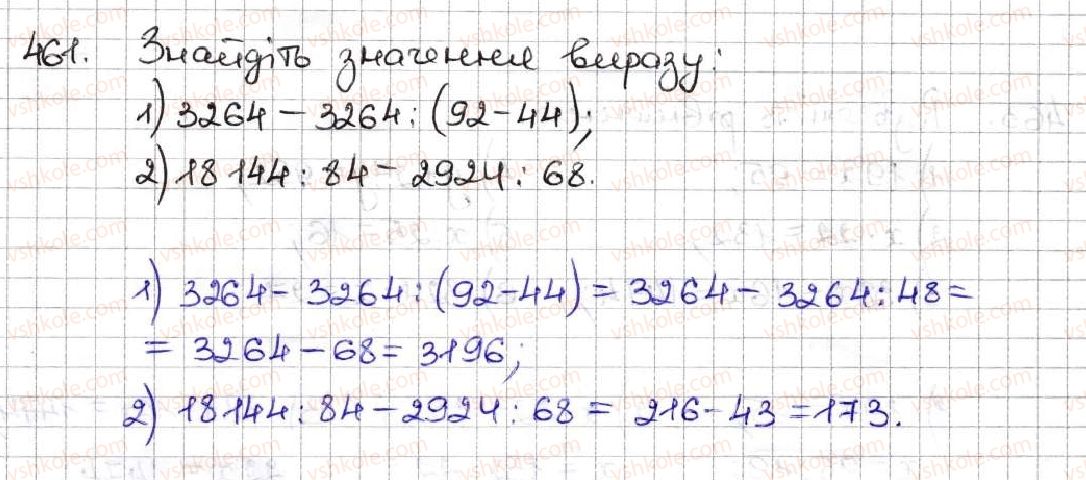 461. Знайдіть значення виразу:
1) 3264 - 3264 : (92 - 44);
2) 18 144 : 84 - 2924 : 68.
1) 3264 - 3264 : (92 - 44) = 3264 - 3264 : 48 =
= 3264 - 68 = 3196;
2) 18144 : 84 - 2924 : 68 = 216 - 43 = 173.